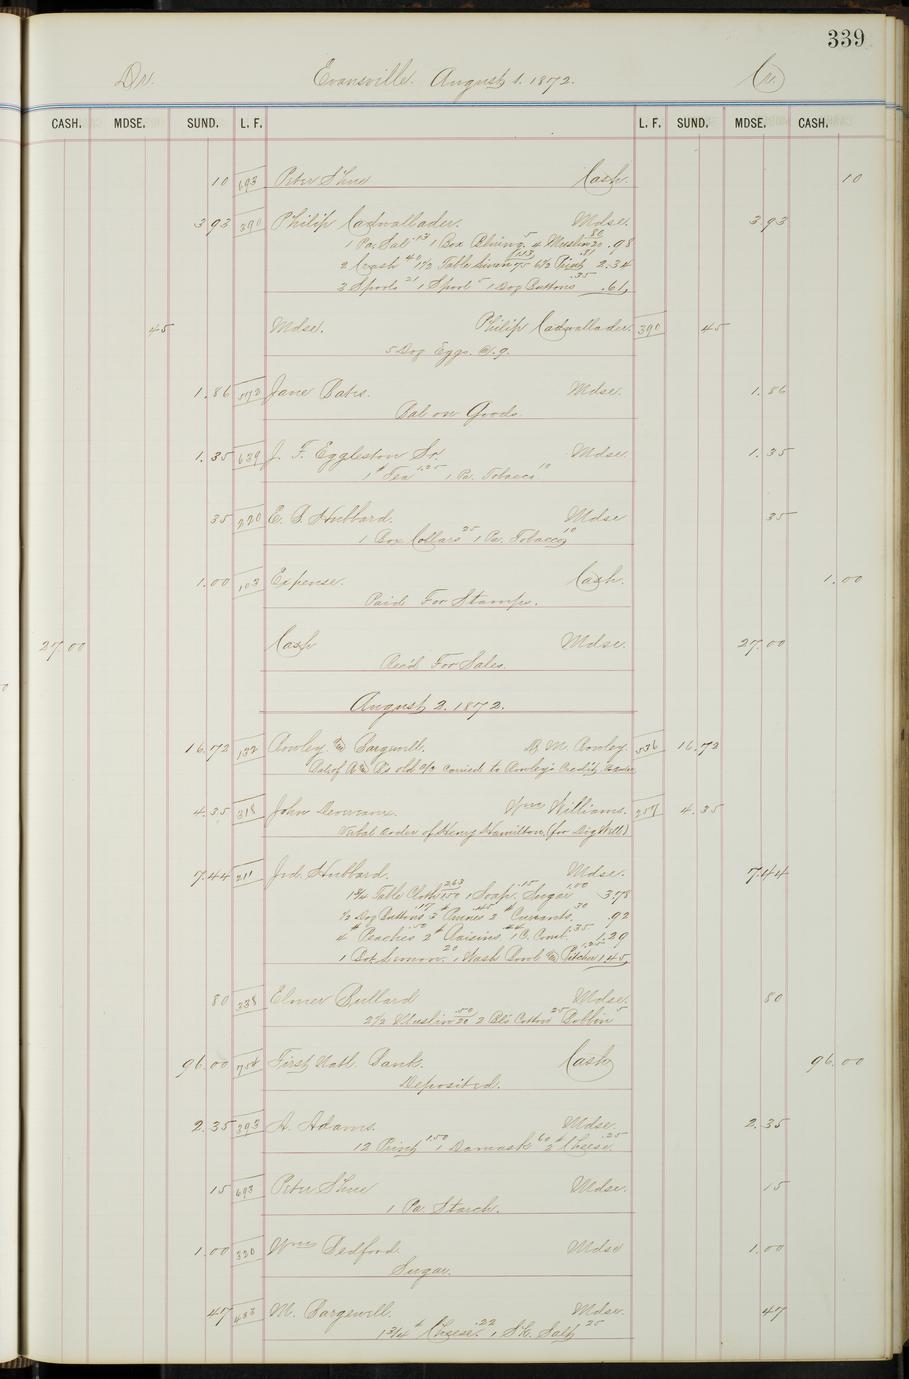 339
Dr. Evansville. August 1. 1872. Cr.
CASH. MDSE. SUND. L. F. L. F. SUND. MDSE. CASH.
10 693 Peter Shue Cash. 10
3 93 390 Philip Cadwallader. Mdse. 3 93
1 Pa. Sal .13 1 Box Bluing. 5 4 Muslin 20 .80 .98
2 Crash 40 1 1/2 Table Linen 75 1.13 6 1/2 Print .81 2.34
3 Spools 21 1 Spool 5 1 Dog Buttons .35 .61
45 Mdse. Philip Cadwallader. 390 45
5 Dog Eggs. @ .9.
1.86 572 Jane Bates. Mdse. 1.86
Bal on Goods.
1.35 639 J. F. Eggleston Sr. Mdse. 1.35
1 # Tea 1.25 1 Pa. Tobacco 10
35 220 E. B. Hubbard. Mdse 35
1 Box Collars 25 1 Pa. Tobacco 10
1.00 103 Expense. Cash. 1.00
Paid For Stamps.
27.00 Cash Mdse. 27.00
Rec'd For Sales.
August 2. 1872.
16.72 132 Rowley & Bargwell. M. Rowley. 536 16.72
Bal of R & B's old a/c carried to Rowley's Credit
4.35 318 John Wm Williams. 257 4.35
Verbal order of Henry Hamilton. (for Dig Well)
7.44 211 Jud. Hubbard. Mdse. 7.44
1 3/4 Table Cloth 150 2.63 1 Soap. .15 Sugar 1.00 3.78
1/2 Dog Buttons .17 3 # Prunes .45 2 # Currants. .30 .92
4 # Peaches .50 2 # Raisins .44 1 C. Comb. .35 1.29
1 Bot Lemon. 20 1 Wash Bowl & Pitcher 1.25 1.45
80 338 Elmer Bullard Mdse. 80
2 1/2 Muslin 20 .50 2 Bls Cotton 25 Bobbin 5
96.00 754 First Natl. Bank. Cash 96.00
Deposited.
2.35 393 A. Adams. Mdse. 2.35
12 Print 1.50 1 Damask 60 2 # Cheese .25
15 693 Peter Shue Mdse. 15
1 Pa. Starch.
1.00 320 Wm Bedford. Mdse 1.00
Sugar.
47 433 M. Bargewell. Mdse. 47
1 3/4 # Cheese .22 1 Sk. Salt .25